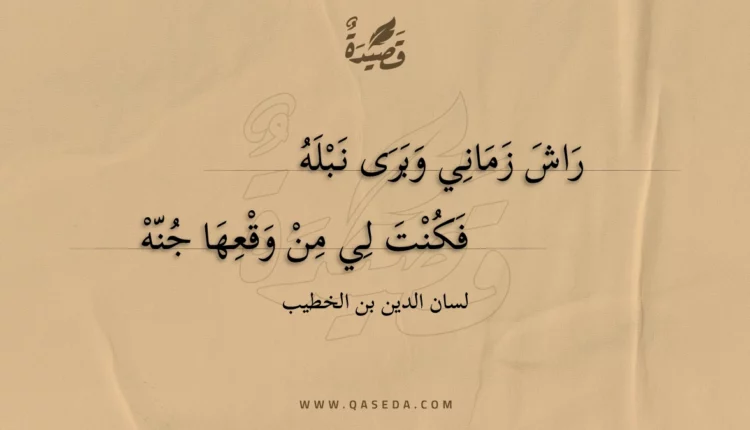 قَصِيدَةٌ
رَاشَ زَمَانِي وَبَرَى نَبْلَهُ
فَكُنْتَ لِي مِنْ وَقْعِهَا جُنّهْ
لسان الدين بن الخطيب
WWW.QASEDA.COM